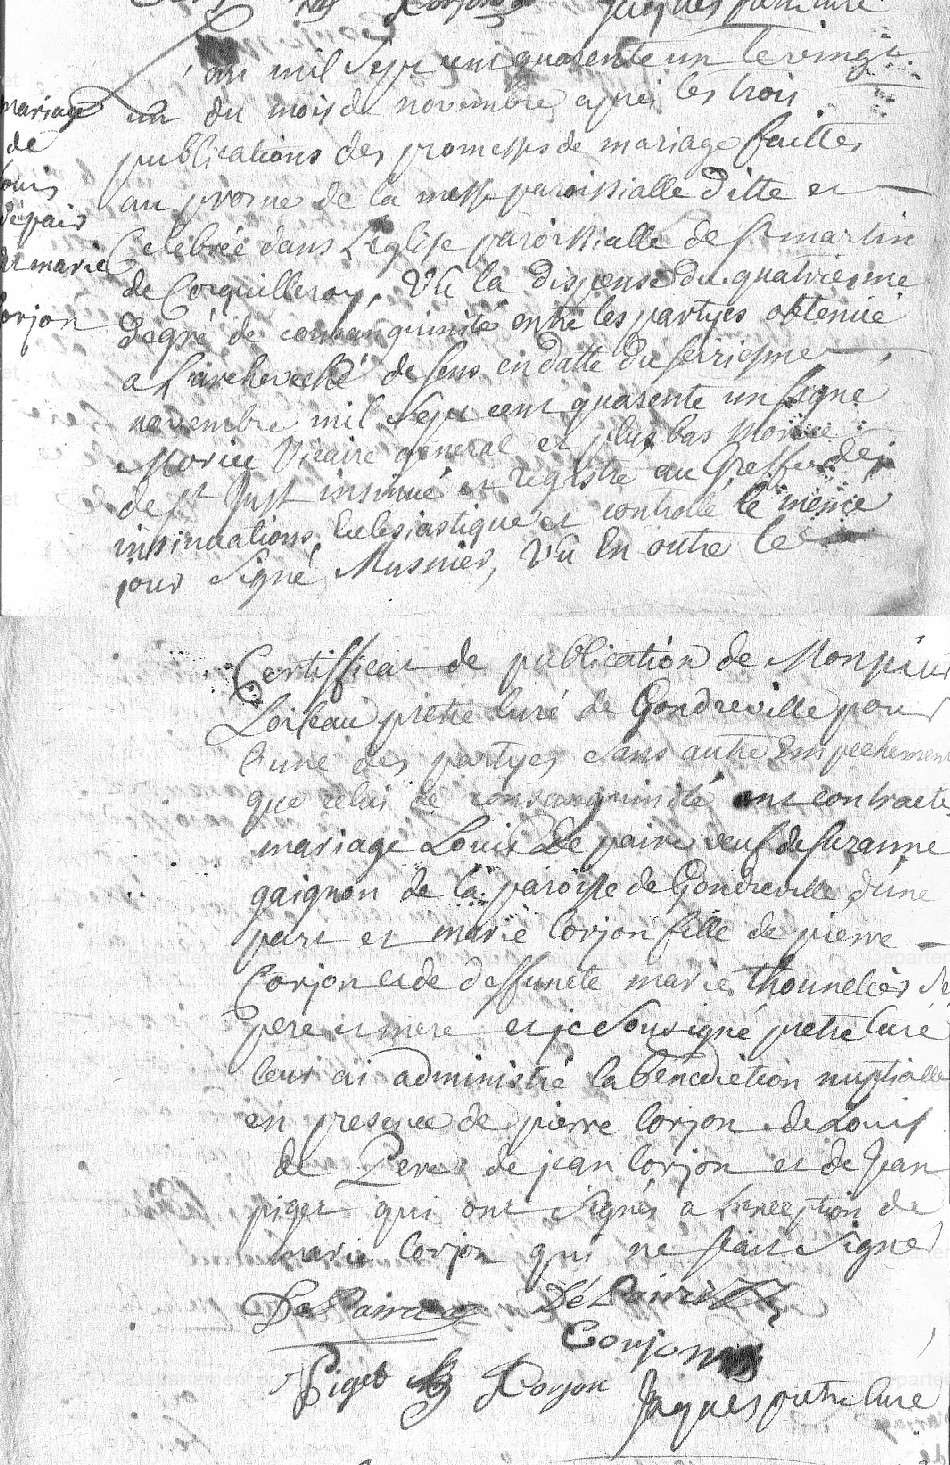 Jacques pretre curé
mariage
de
Louis
depais
et marie
Corjon
L'an mil sept cent quarente un le vingt
un du mois de novembre apres les trois
publications des promesses de mariage faittes
au prosne de la messe paroissialle ditte et
Celebrée dans L'eglise paroissialle de st martin
de Corquilleroy, Vu la dispense du quatriesme
degré de consanguinité entre les partyes obtenüe
a L'archeveché de sens en datte du seiziesme
novembre mil sept cent quarente un signé
Morice Vicaire general et plus bas
de st Just insinué et registré au Greffe des
insinuations Ecclesiastiques et controllé le même
jour signé Musnier, Vu En outre le
Certifficat de publication de Monsieur
Loiseau pretre Curé de Gondreville pour
L'une des partyes sans autre Empechement
que celui de consanguinité ont contracté
mariage Louis De paire veuf de suzanne
gaignon de la paroisse de Gondreville d'une
part et marie Corjon fille de pierre
Corjon et de deffuncte marie Thounelier
pere et mere et je soussigné pretre Curé
leur ai administré la benediction nuptialle
en presence de pierre Corjon de Louis
de Pere de jean Corjon et de Jean
piget qui ont signés a L'exception de
marie Corjon qui ne sçait signer
De Paire De Paire
Corjon
Piget Corjon Jaques pretre Curé